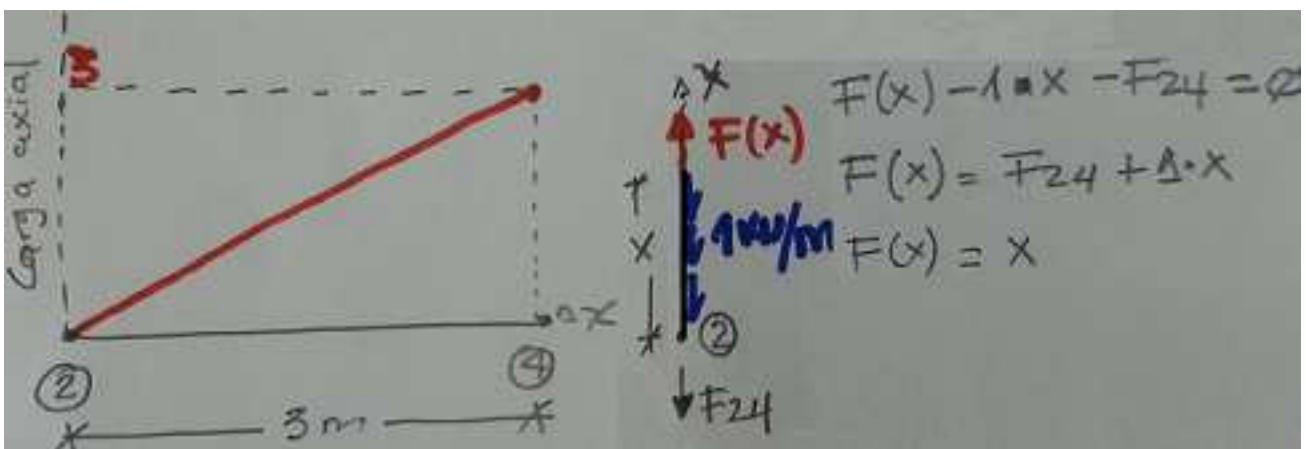 Carga axial
3
x
② ④
3 m
x
F(x)
x
1 KN/m
②
F24
F(x) - 1 • x - F24 = ∅
F(x) = F24 + 1 • x
F(x) = x